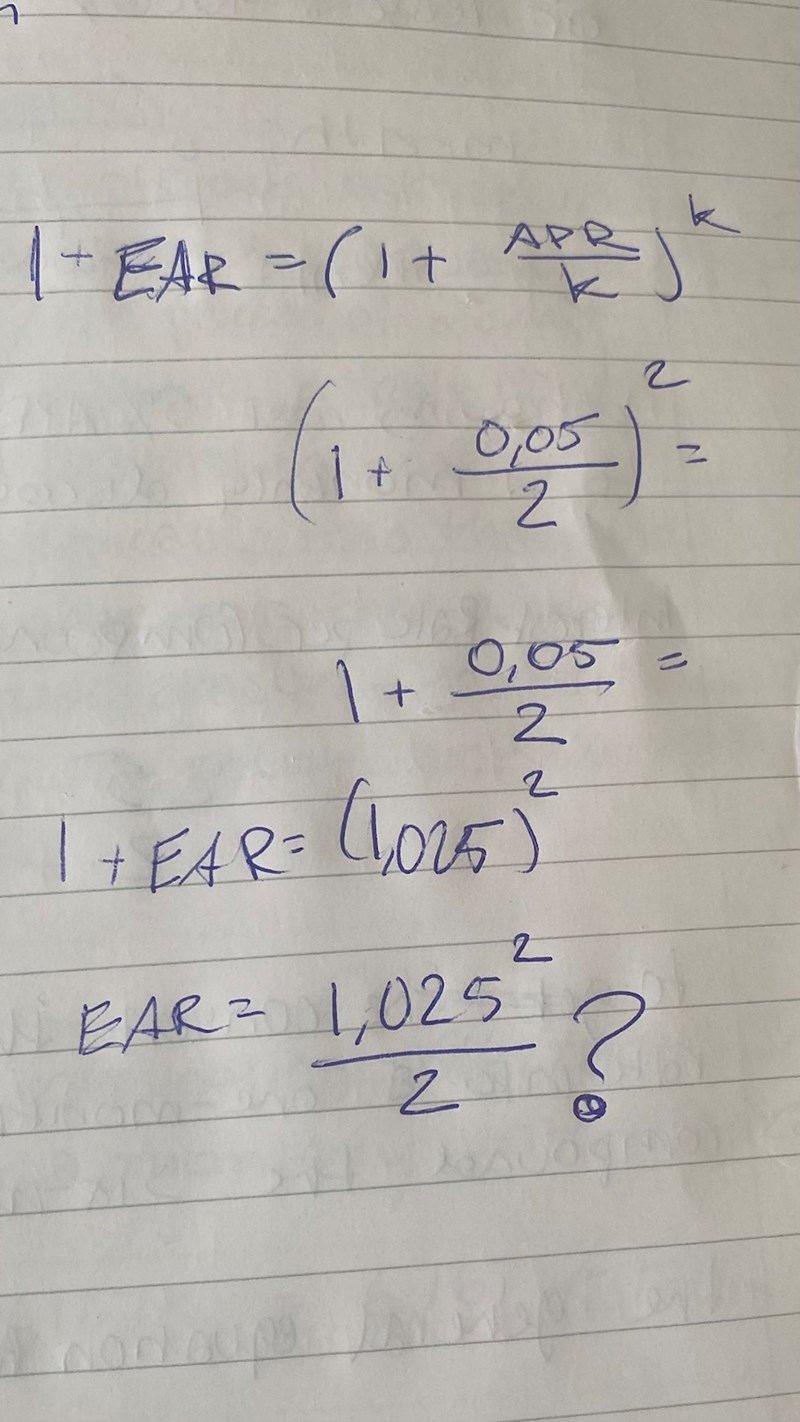 1 + EAR = (1 + APR/k)^k
(1 + 0,05/2)^2 =
1 + 0,05/2 =
1 + EAR = (1,025)^2
EAR = 1,025^2/2 ?